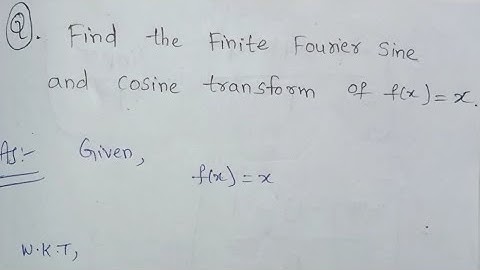 Q. Find the Finite Fourier sine
and cosine transform of f(x) = x.
As:- Given,
f(x) = x
W.K.T,